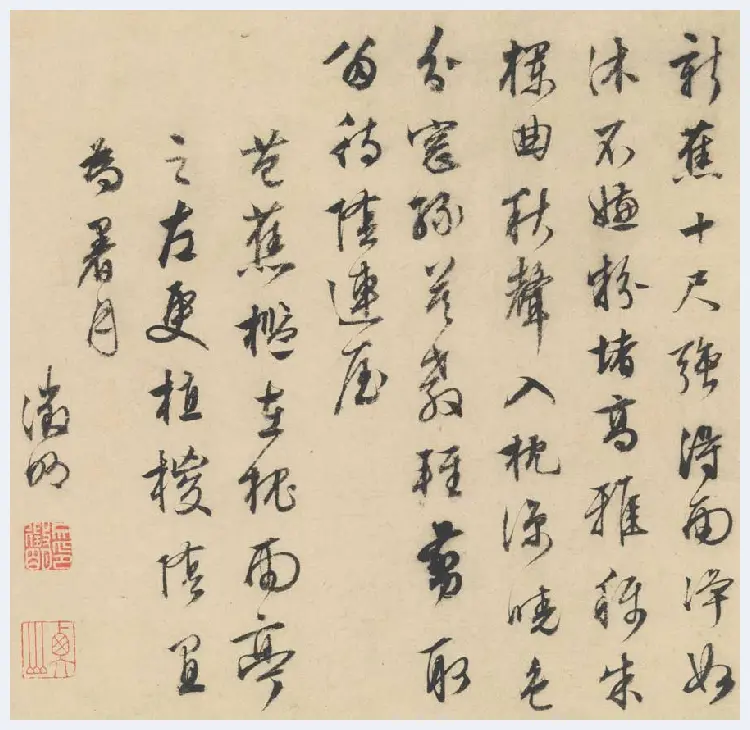 新蕉十尺強得雨淨如
沐不嫌粉堵高雅稱朱
欄曲秋聲入枕涼曉色
分窗綠莫教輕剪取
留待陰連屋
芭蕉檻在槐雨亭
之左更植椶陰宜
為暑月
徵明